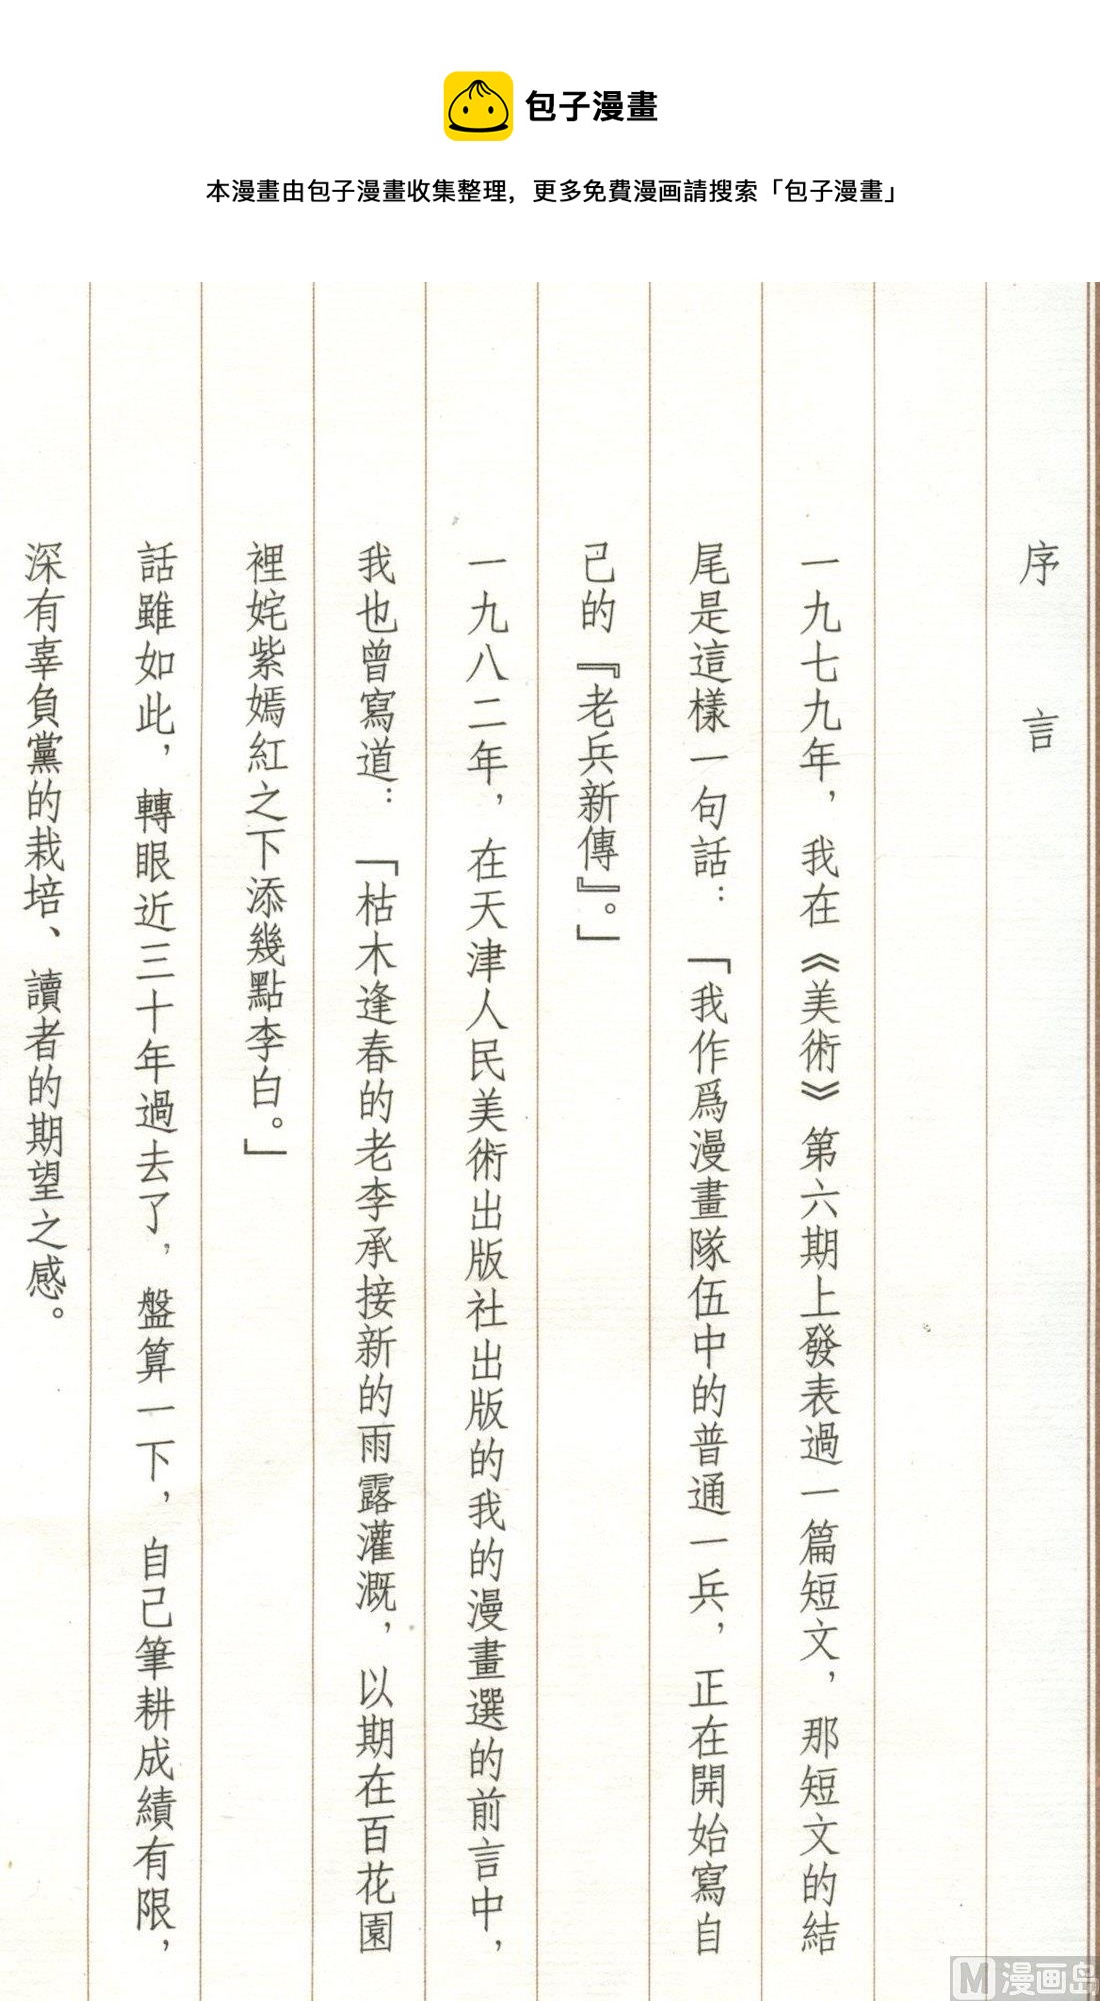 包子漫畫
本漫畫由包子漫畫收集整理，更多免費漫画請搜索「包子漫畫」
序言
一九七九年，我在《美術》第六期上發表過一篇短文，那短文的結
尾是這樣一句話：「我作爲漫畫隊伍中的普通一兵，正在開始寫自
己的『老兵新傳』。」
一九八二年，在天津人民美術出版社出版的我的漫畫選的前言中，
我也曾寫道：「枯木逢春的老李承接新的雨露灌溉，以期在百花園
裡姹紫嫣紅之下添幾點李白。」
話雖如此，轉眼近三十年過去了，盤算一下，自己筆耕成績有限，
深有辜負黨的栽培、讀者的期望之感。
M漫画岛